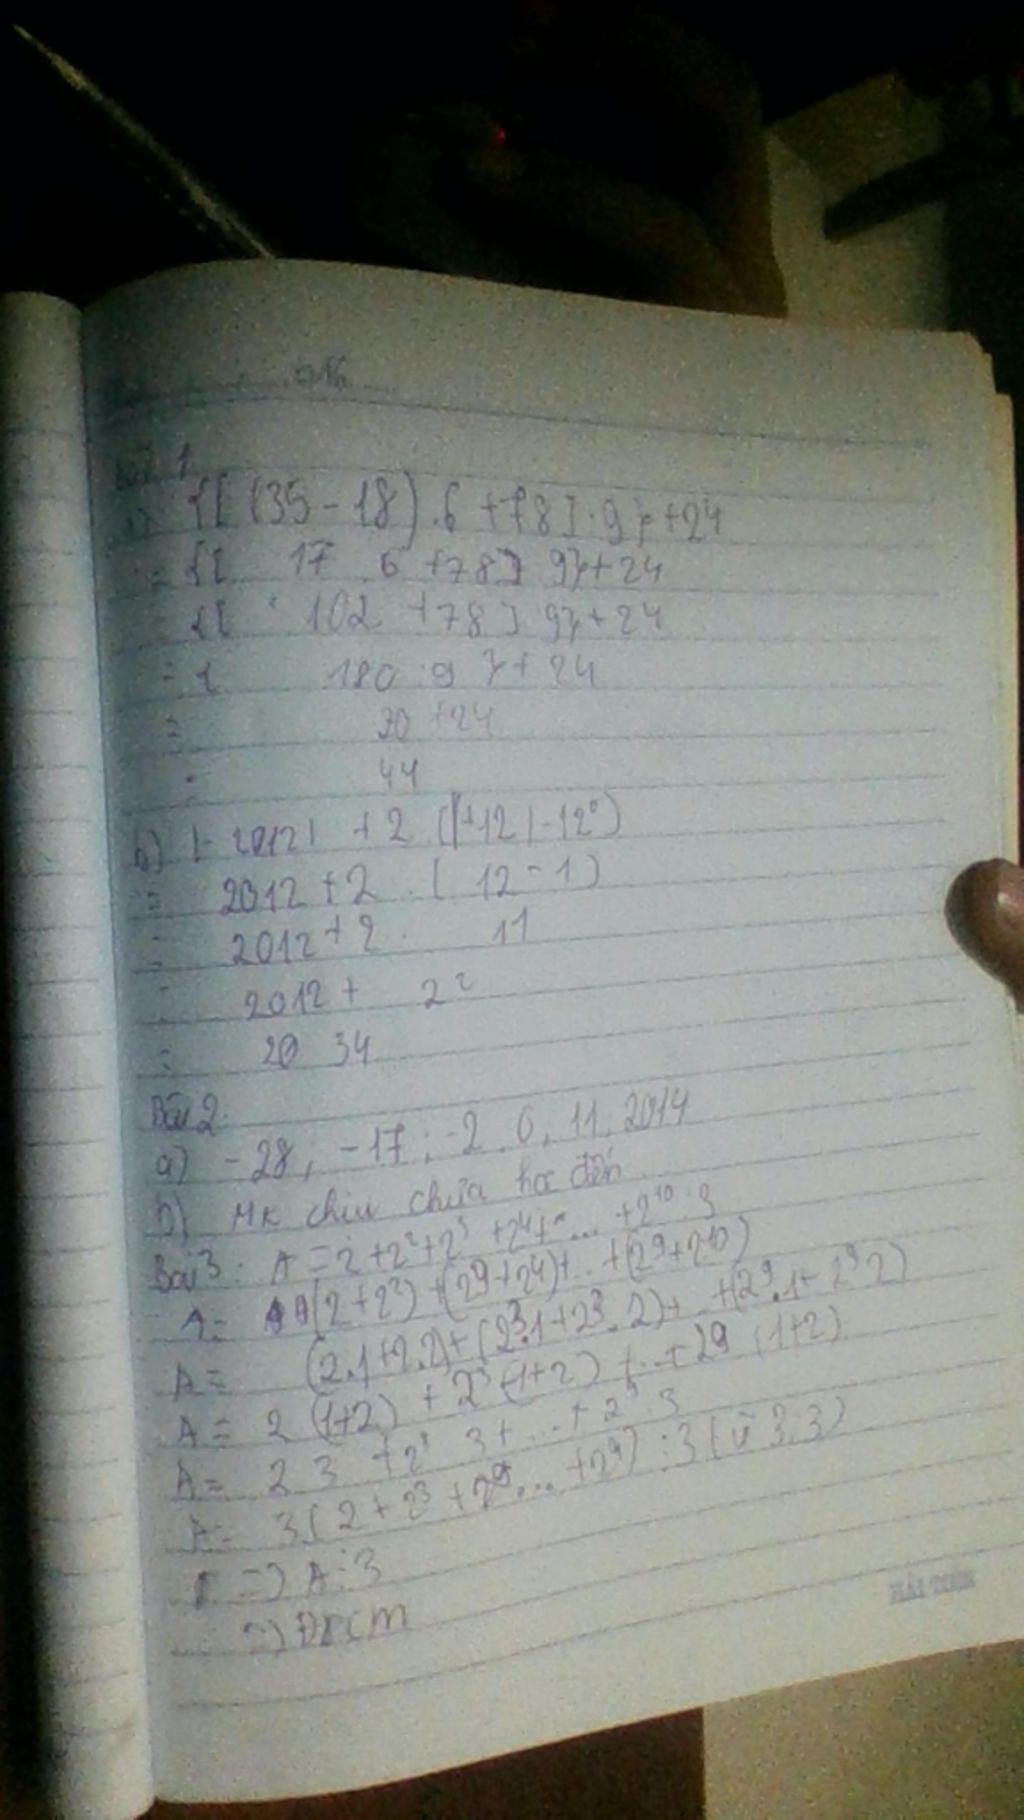 Bài 1
a) {[(35-18).6+78]:9}+24
= {[ 17 6 +78] 9}+24
{[ 102 +78] 9}+24
= { 180:9 }+24
= 20 +24
= 44
b) |-2012| + 2 (|+12|-12⁰)
= 2012+2 . ( 12-1)
= 2012+2. 11
= 2012+ 22
= 20 34
Bài 2:
a) -28; -17; -2. 0, 11, 2014
b) Mk chịu chưa học đến
Bài 3: A=2+2²+2³+2⁴+...+2¹⁰:3
A= (2+2²)+(2³+2⁴)+..+(2⁹+2¹⁰)
A= (2.1+2.2)+(2³.1+2³.2)+ +(2⁹.1+2⁹2)
A= 2 (1+2) + 2³(1+2) +..+29 (1+2)
A= 2 3 +2³ 3+...+2⁹.3
A= 3(2+2³+...+2⁹):3 ( 3:3)
=) A:3
=) ĐPCM
HẢI TIẾN